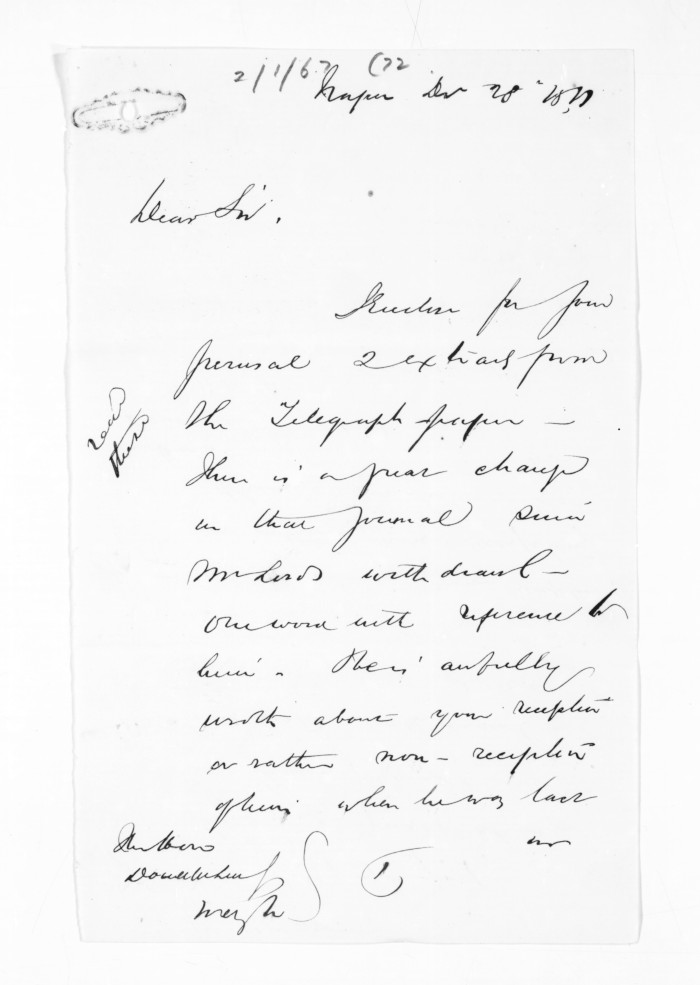 2/1/67 (72
Napier Dec 28" 1871
Dear Sir,
I enclose for your
perusal 2 extracts from
the Telegraph paper –
There is a great change
in that journal since
Mr Lords withdrawl –
One word with reference to
him. He is awfully
wroth about your reception
or rather non-reception
of him when he was last
in
read
these
The Hon
Donald McLean